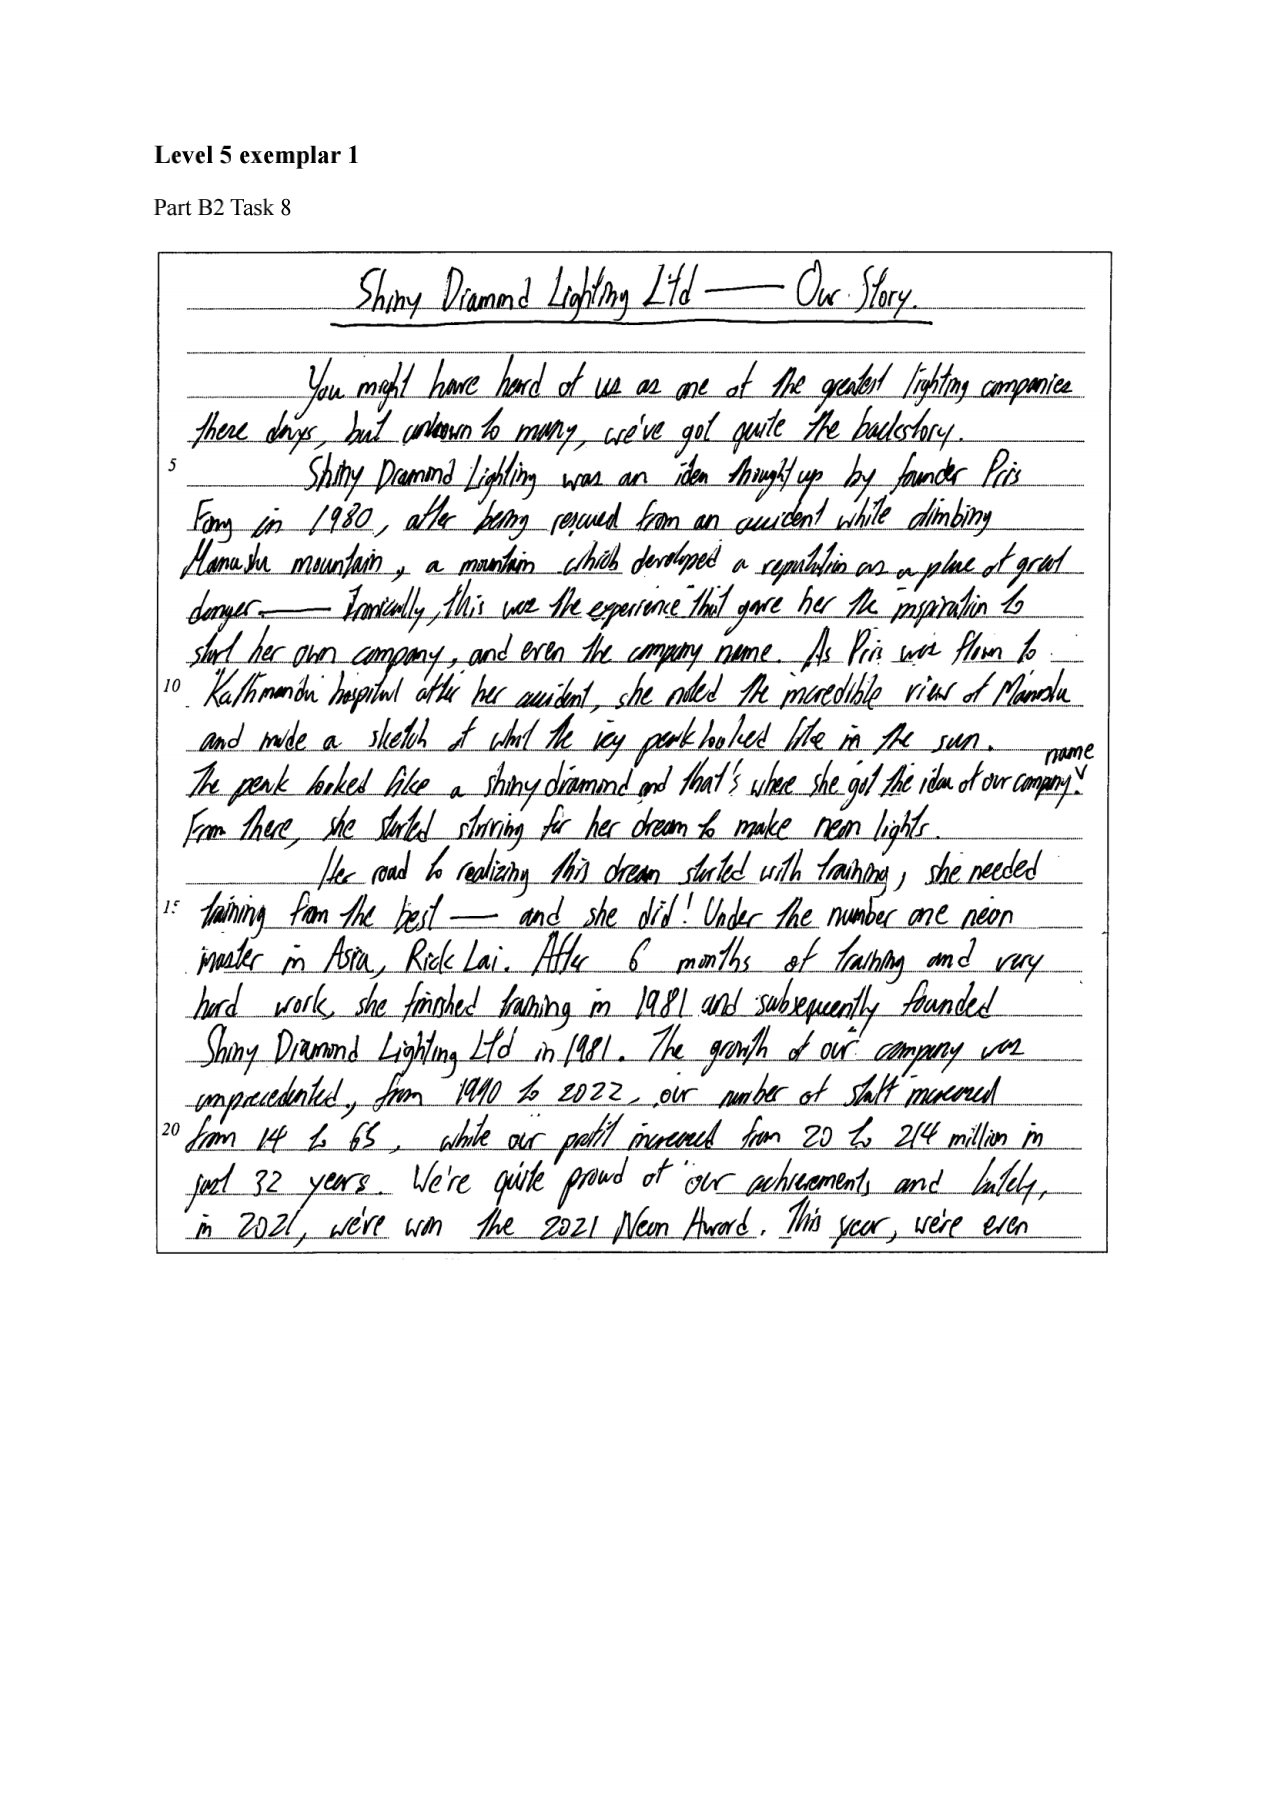 Level 5 exemplar 1
Part B2 Task 8
Shiny Diamond Lighting Ltd — Our Story.
You might have heard of us as one of the greatest lighting companies
these days, but unknown to many, we've got quite the backstory.
5
Shiny Diamond Lighting was an idea thought up by founder Pris
Fong in 1980, after being rescued from an accident while climbing
Manaslu mountain, a mountain which developed a reputation as a place of great
danger — Ironically, this was the experience that gave her the inspiration to
start her own company, and even the company name. As Pris was flown to
10 Kathmandu hospital after her accident, she noted the incredible view of Manaslu
and made a sketch of what the icy peak looked like in the sun.
The peak looked like a shiny diamond and that's where she got the idea of our company name.
From there, she started striving for her dream to make neon lights.
Her road to realizing this dream started with training, she needed
15 training from the best — and she did! Under the number one neon
master in Asia, Rick Lai. After 6 months of training and very
hard work, she finished training in 1981 and subsequently founded
Shiny Diamond Lighting Ltd in 1981. The growth of our company was
unprecedented, from 1990 to 2022, our number of staff increased
20 from 14 to 65, while our profit increased from 20 to 214 million in
just 32 years. We're quite proud of our achievements and lately,
in 2021, we've won the 2021 Neon Award. This year, we're even